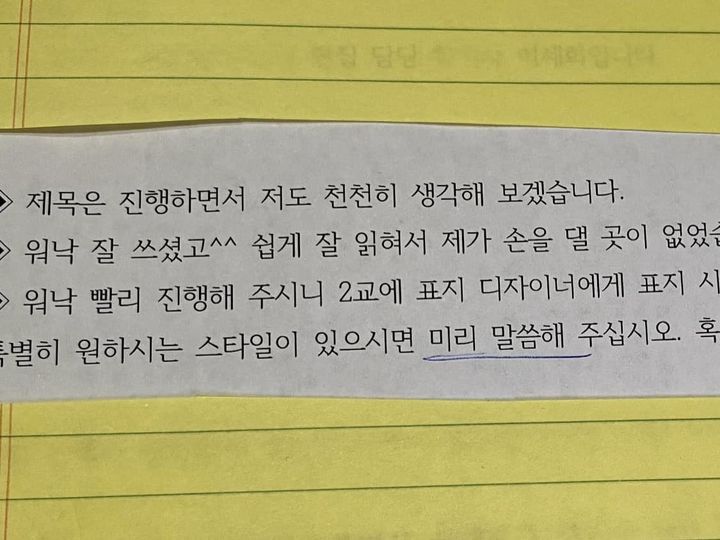 ◈ 제목은 진행하면서 저도 천천히 생각해 보겠습니다.
◈ 워낙 잘 쓰셨고^^ 쉽게 잘 읽혀서 제가 손을 댈 곳이 없었습
◈ 워낙 빨리 진행해 주시니 2교에 표지 디자이너에게 표지 시
특별히 원하시는 스타일이 있으시면 미리 말씀해 주십시오. 혹